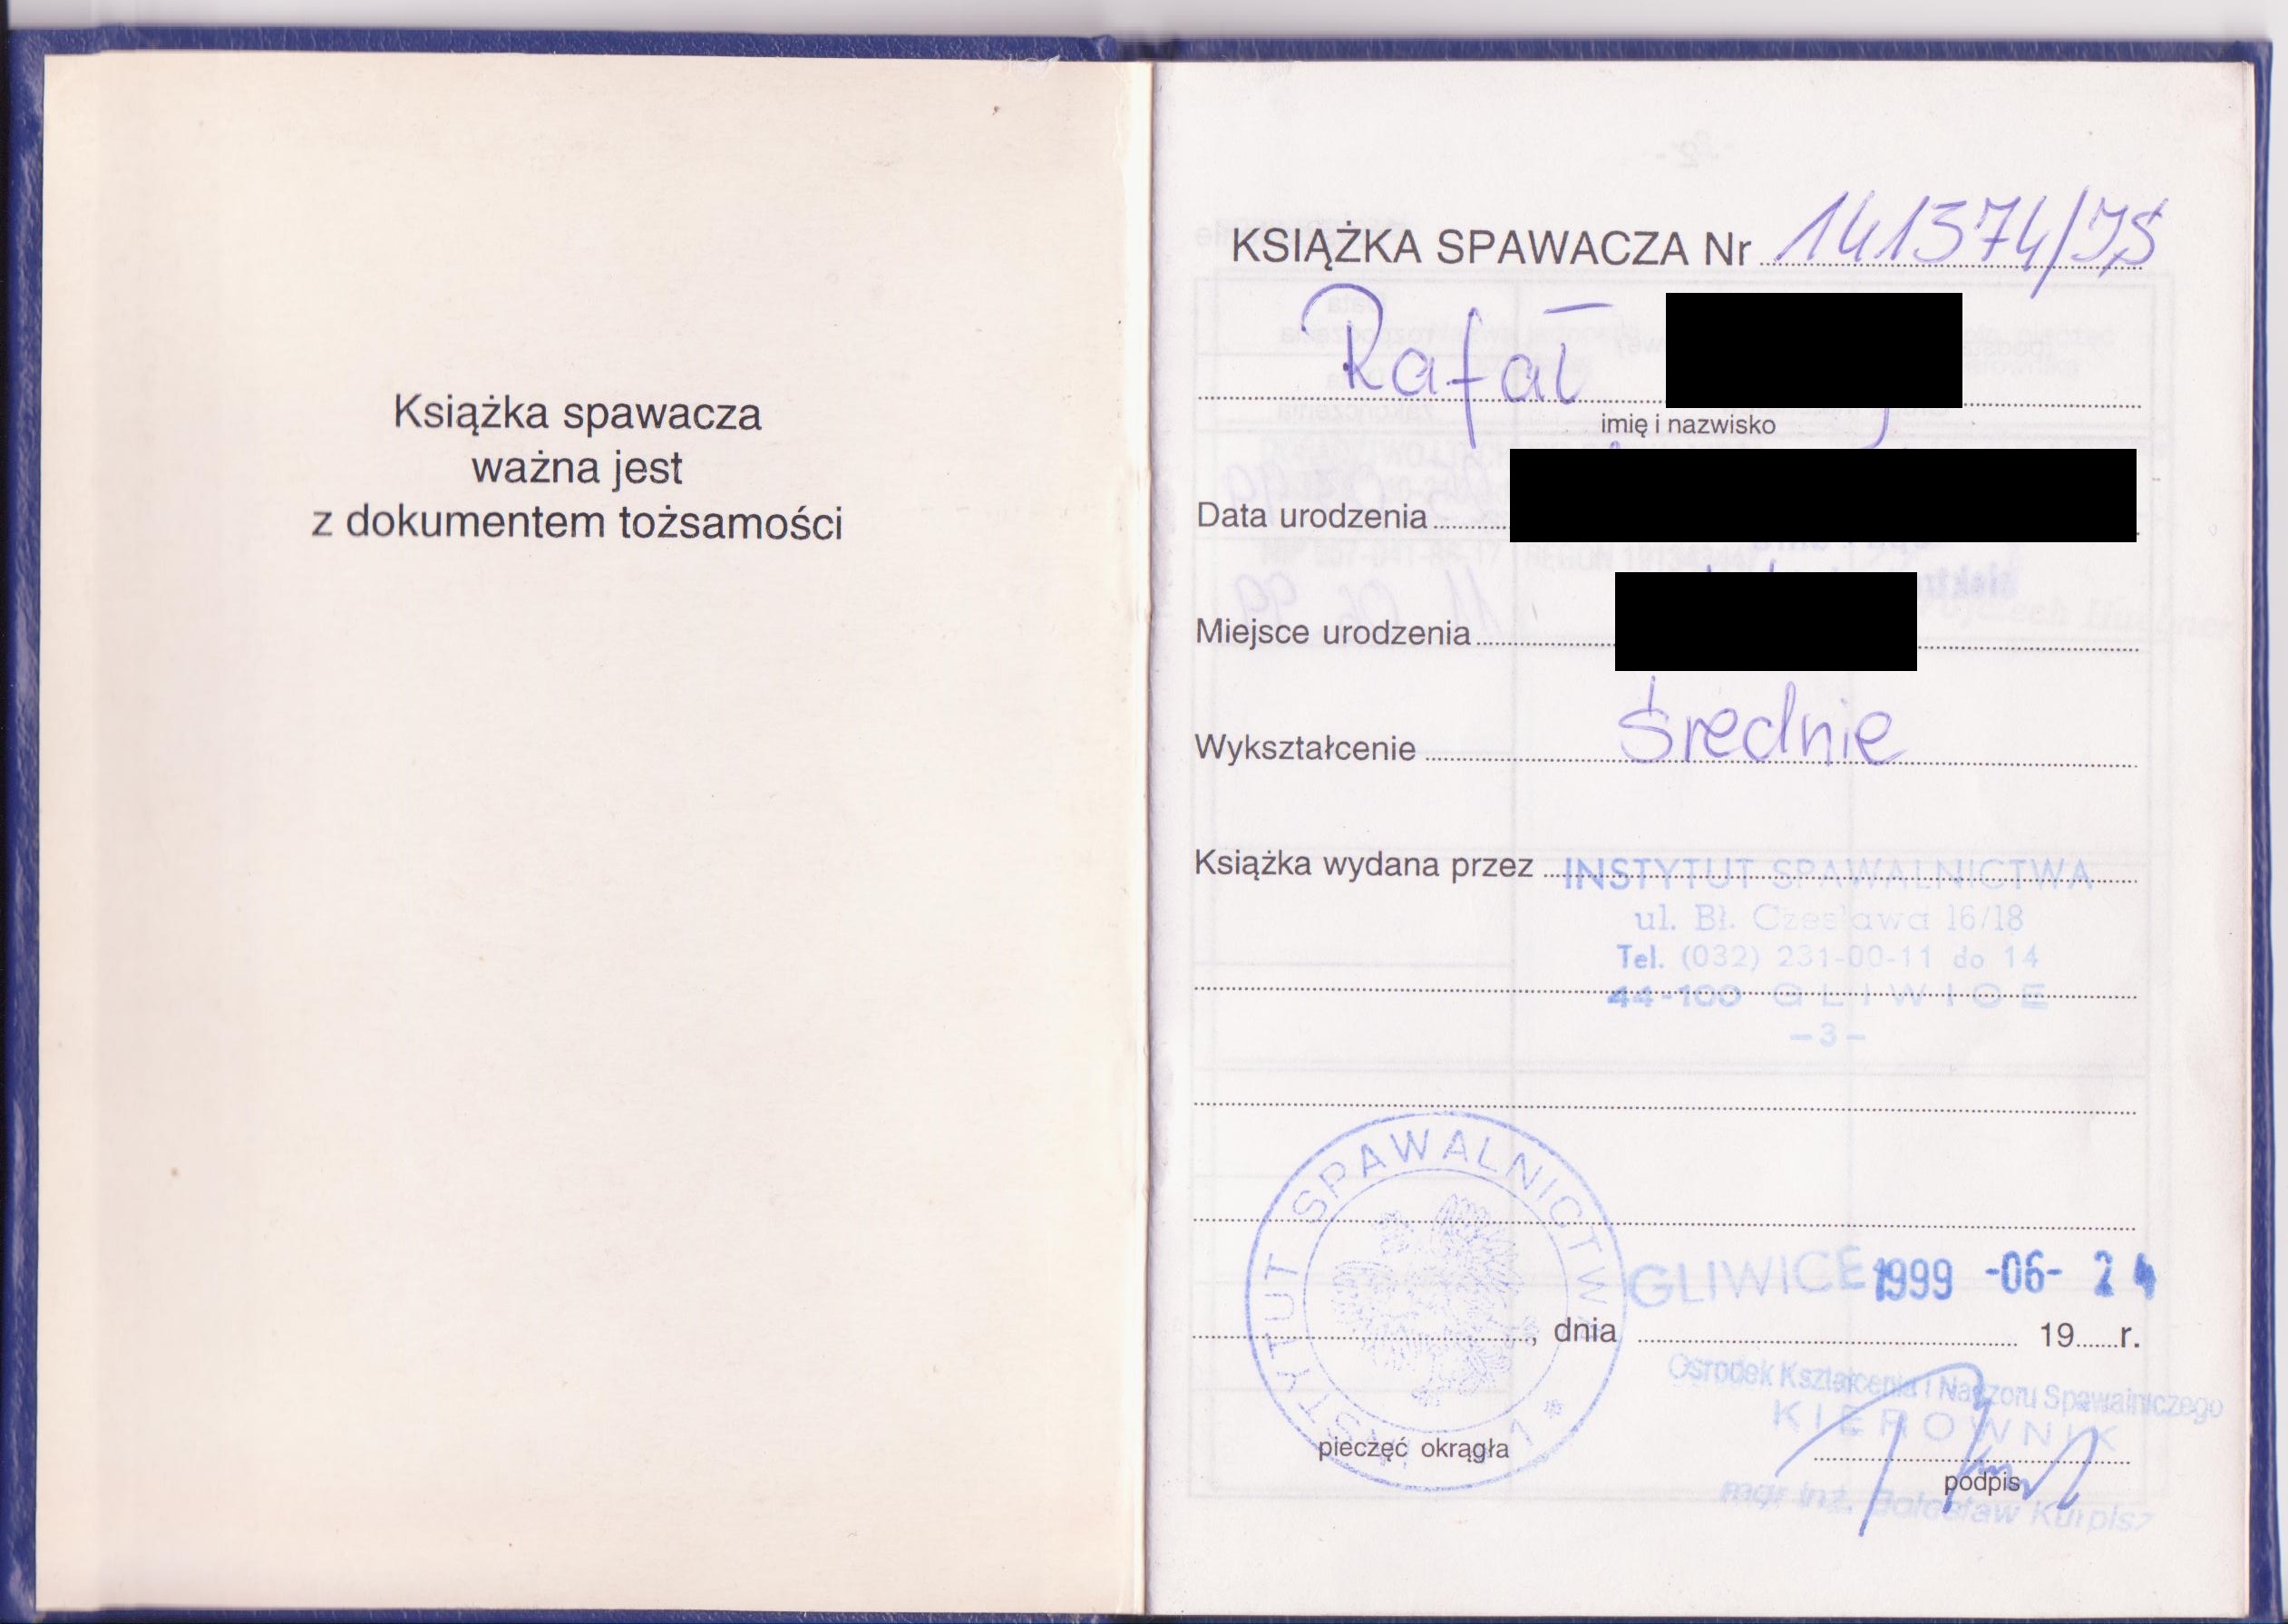 Książka spawacza
ważna jest
z dokumentem tożsamości
KSIĄŻKA SPAWACZA Nr 141374/JS
Rafał
imię i nazwisko
Data urodzenia
Miejsce urodzenia
Wykształcenie średnie
Książka wydana przez INSTYTUT SPAWALNICTWA
ul. Bł. Czesława 16/18
Tel. (032) 231-00-11 do 14
44-100 GLIWICE
-3-
INSTYTUT SPAWALNICTWA *
GLIWICE 1999 -06- 24
, dnia 19 r.
Ośrodek Kształcenia i Nadzoru Spawalniczego
KIEROWNIK
pieczęć okrągła
podpis
mgr inż. Bolesław Kurpisz